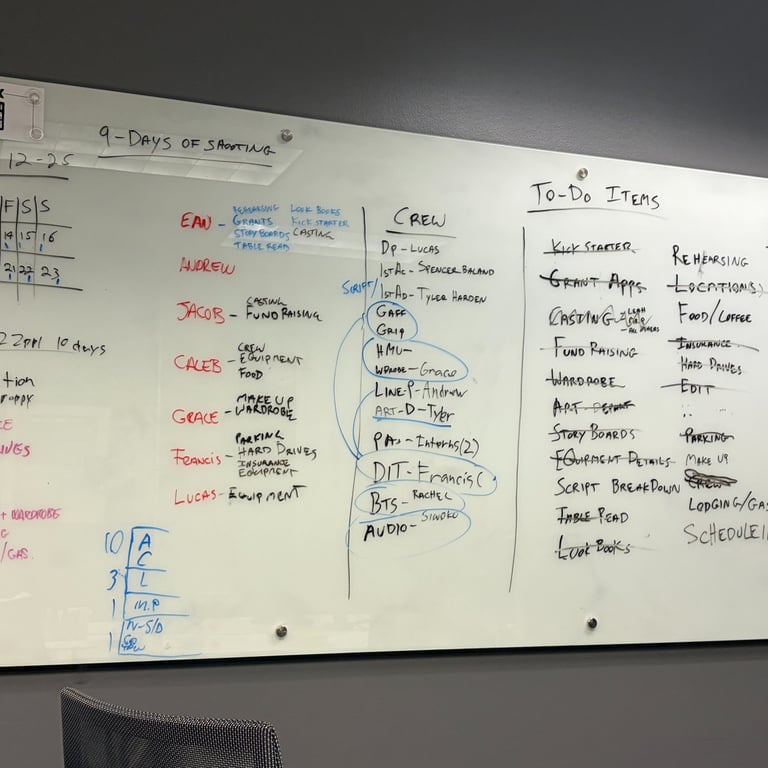 9-DAYS OF SHOOTING
12-25
F S S
14 15 16
21 22 23
10 days
EAN - REHEARSING LOOK BOOKS
GRANTS KICK STARTER
STORY BOARDS CASTING
TABLE READ
ANDREW
JACOB - CASTING
FUND RAISING
CALEB - CREW
EQUIPMENT
FOOD
GRACE - MAKE UP
WARDROBE
FRANCIS - PARKING
HARD DRIVES
INSURANCE
EQUIPMENT
LUCAS - EQUIPMENT
+ WARDROBE
/GAS.
10 A
C
3 L
1 M.P
1 N-S/D
CREW
DP - LUCAS
1st AC - SPENCER BALAND
SCRIPT/
1st AD - TYLER HARDEN
GAFF
GRIP
HMU -
WDROBE - Grace
LINE-P-Andrew
ART-D-Tyler
PAs - Interns(2)
DIT-Francis C
BTS - RACHEL
AUDIO -
TO-DO ITEMS
KICK STARTER
GRANT APPS
CASTING
FUND RAISING
WARDROBE
ART DEPART
STORY BOARDS
EQUIPMENT DETAILS
SCRIPT BREAKDOWN
TABLE READ
LOOK BOOKS
REHEARSING
LOCATION(S)
FOOD/COFFEE
INSURANCE
HARD DRIVES
EDIT
PARKING
MAKE UP
CREW
LODGING/GAS
SCHEDULEI